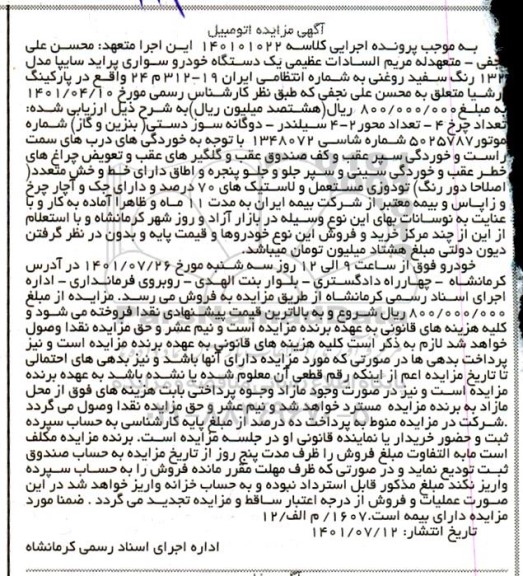 آگهی مزایده اتومبیل
به موجب پرونده اجرایی کلاسه ۱۴۰۱۰۱۰۲۲ این اجرا متعهد: محسن علی
نجفی - متعهدله مریم السادات عظیمی یک دستگاه خودرو سواری پراید سایپا مدل
۱۳۲ رنگ سفید روغنی به شماره انتظامی ایران ۱۹-۳۱۲م۲۴ واقع در پارکینگ
رشیا متعلق به محسن علی نجفی که طبق نظر کارشناس رسمی مورخ ۱۴۰۱/۰۴/۱۰
به مبلغ ۸۰۰/۰۰۰/۰۰۰ ریال(هشتصد میلیون ریال)به شرح ذیل ارزیابی شده:
تعداد چرخ ۴ - تعداد محور۲-۴ سیلندر - دوگانه سوز دستی( بنزین و گاز) شماره
موتور۵۰۲۵۷۸۷ شماره شاسی ۱۳۴۸۰۷۲ با توجه به خوردگی های درب های سمت
راست و خوردگی سپر عقب و کف صندوق عقب و گلگیر های عقب و تعویض چراغ های
خطر عقب و خوردگی سینی و سپر جلو و جلو پنجره و اطاق دارای خط و خش متعدد(
اصلاحا دور رنگ) تودوزی مستعمل و لاستیک های ۷۰ درصد و دارای جک و آچار چرخ
و زاپاس و بیمه معتبر از شرکت بیمه ایران به مدت ۱۱ ماه و ظاهرا آماده به کار و با
عنایت به نوسانات بهای این نوع وسیله در بازار آزاد و روز شهر کرمانشاه و با استعلام
از این از چند مرکز خرید و فروش این نوع خودروها و قیمت پایه و بدون در نظر گرفتن
دیون دولتی مبلغ هشتاد میلیون تومان میباشد.
خودرو فوق از ساعت ۹ الی ۱۲ روز سه شنبه مورخ ۱۴۰۱/۰۷/۲۶ در آدرس
کرمانشاه - چهارراه دادگستری - بلوار بنت الهدی - روبروی فرمانداری - اداره
اجرای اسناد رسمی کرمانشاه از طریق مزایده به فروش می رسد. مزایده از مبلغ
۸۰۰/۰۰۰/۰۰۰ ریال شروع و به بالاترین قیمت پیشنهادی نقدا فروخته می شود و
کلیه هزینه های قانونی به عهده برنده مزایده است و نیم عشر و حق مزایده نقدا وصول
خواهد شد لازم به ذکر است کلیه هزینه های قانونی به عهده برنده مزایده است و نیز
پرداخت بدهی ها در صورتی که مورد مزایده دارای آنها باشد و نیز بدهی های احتمالی
تا تاریخ مزایده اعم از اینکه رقم قطعی آن معلوم شده یا نشده باشد به عهده برنده
مزایده است و نیز در صورت وجود مازاد وجوه پرداختی بابت هزینه های فوق از محل
مازاد به برنده مزایده مسترد خواهد شد و نیم عشر و حق مزایده نقدا وصول می گردد
.شرکت در مزایده منوط به پرداخت ده درصد از مبلغ پایه کارشناسی به حساب سپرده
ثبت و حضور خریدار یا نماینده قانونی او در جلسه مزایده است. برنده مزایده مکلف
است مابه التفاوت مبلغ فروش را ظرف مدت پنج روز از تاریخ مزایده به حساب صندوق
ثبت تودیع نماید و در صورتی که ظرف مهلت مقرر مانده فروش را به حساب سپرده
واریز نکند مبلغ مذکور قابل استرداد نبوده و به حساب خزانه واریز خواهد شد در این
صورت عملیات و فروش از درجه اعتبار ساقط و مزایده تجدید می گردد . ضمنا مورد
مزایده دارای بیمه است.۱۶۰۷/ م الف/۱۲
تاریخ انتشار: ۱۴۰۱/۰۷/۱۲
اداره اجرای اسناد رسمی کرمانشاه